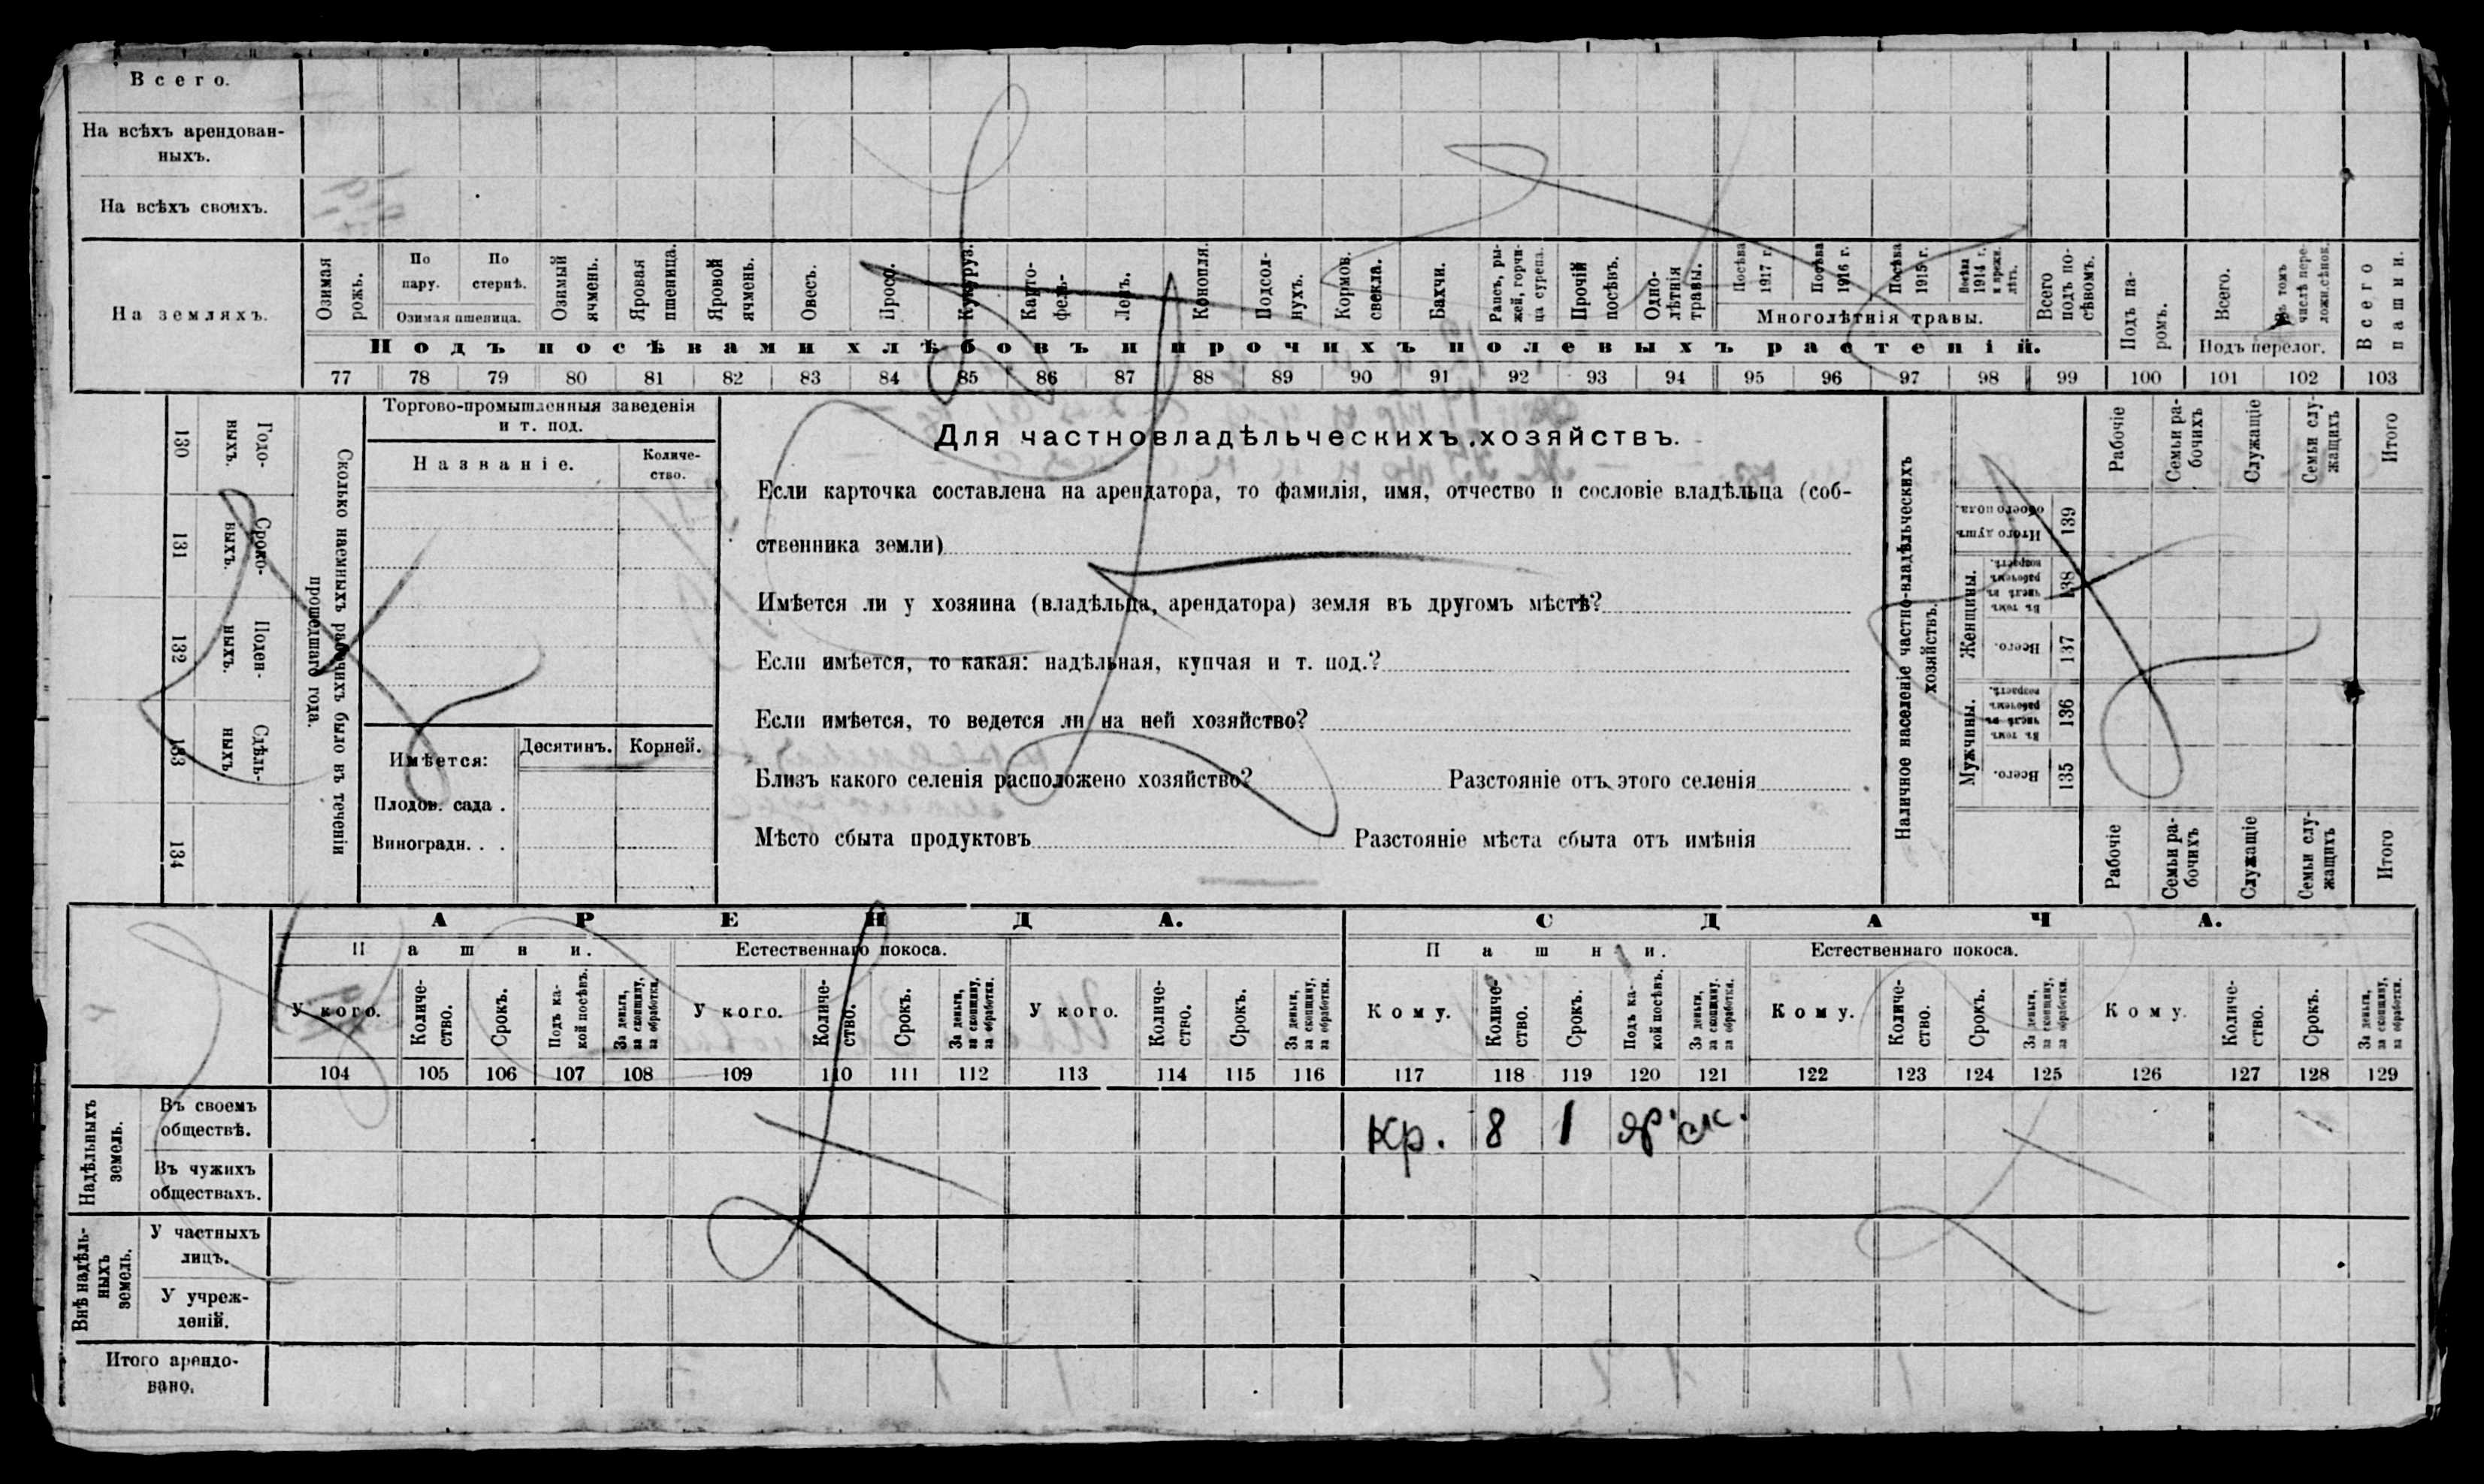 Всего.
На всѣхъ арендован-
ныхъ.
На всѣхъ своихъ.
На земляхъ.
Озимая рожь.
По пару.
По стернѣ.
Озимая пшеница.
Озимый ячмень.
Яровая пшеница.
Яровой ячмень.
Овесъ.
Просо.
Кукуруз.
Карто-
фель.
Ленъ.
Конопля.
Подсол-
нухъ.
Кормов. свекла.
Бахчи.
Рапсъ, ры-
жей, горчи-
ца сурепа.
Прочій посѣвъ.
Одно-
лѣтнія травы.
Посѣва 1917 г.
Посѣва 1916 г.
Посѣва 1915 г.
Посѣва 1914 г. и прежн. лѣтъ.
Многолѣтнія травы.
Всего подъ по-
сѣвомъ.
Подъ па-
ромъ.
Всего.
Въ томъ числѣ пере-
ложн. сѣнок.
Подъ перелог.
Всего пашни.
Подъ посѣвами хлѣбовъ и прочихъ полевыхъ растеній.
77 78 79 80 81 82 83 84 85 86 87 88 89 90 91 92 93 94 95 96 97 98 99 100 101 102 103
Сколько наемныхъ рабочихъ было въ теченіи
прошедшаго года.
Годо-
ныхъ.
130
Сроко-
выхъ.
131
Поден-
ныхъ.
132
Сдѣль-
ныхъ.
133
134
Торгово-промышленныя заведенія
и т. под.
Названіе.
Количе-
ство.
Имѣется:
Десятинъ.
Корней.
Плодов. сада .
Виноградн. . .
Для частновладѣльческихъ хозяйствъ.
Если карточка составлена на арендатора, то фамилія, имя, отчество и сословіе владѣльца (соб-
ственника земли)
Имѣется ли у хозяина (владѣльца, арендатора) земля въ другомъ мѣстѣ?
Если имѣется, то какая: надѣльная, купчая и т. под.?
Если имѣется, то ведется ли на ней хозяйство?
Близъ какого селенія расположено хозяйство? Разстояніе отъ этого селенія
Мѣсто сбыта продуктовъ Разстояніе мѣста сбыта отъ имѣнія
Наличное населеніе частно-владѣльческихъ
хозяйствъ.
Мужчины.
Женщины.
Всего.
135
Въ томъ числѣ въ рабочемъ возрастѣ.
136
Всего.
137
Въ томъ числѣ въ рабочемъ возрастѣ.
138
Итого душъ обоего пола.
139
Рабочіе
Семьи ра-
бочихъ
Служащіе
Семьи слу-
жащихъ
Итого
Рабочіе
Семьи ра-
бочихъ
Служащіе
Семьи слу-
жащихъ
Итого
АРЕНДА.
СДАЧА.
Пашни.
Естественнаго покоса.
Пашни.
Естественнаго покоса.
У кого.
Количе-
ство.
Срокъ.
Подъ ка-
кой посѣвъ.
За деньги, за скопщину, за обработки.
У кого.
Количе-
ство.
Срокъ.
За деньги, за скопщину, за обработки.
У кого.
Количе-
ство.
Срокъ.
За деньги, за скопщину, за обработки.
Кому.
Количе-
ство.
Срокъ.
Подъ ка-
кой посѣвъ.
За деньги, за скопщину, за обработки.
Кому.
Количе-
ство.
Срокъ.
За деньги, за скопщину, за обработки.
Кому.
Количе-
ство.
Срокъ.
За деньги, за скопщину, за обработки.
104 105 106 107 108 109 110 111 112 113 114 115 116 117 118 119 120 121 122 123 124 125 126 127 128 129
Надѣльныхъ
земель.
Въ своемъ
обществѣ.
Кр. 8 1 яр. ск.
Въ чужихъ
обществахъ.
Внѣ надѣль-
ныхъ
земель.
У частныхъ
лицъ.
У учреж-
деній.
Итого арендо-
вано.